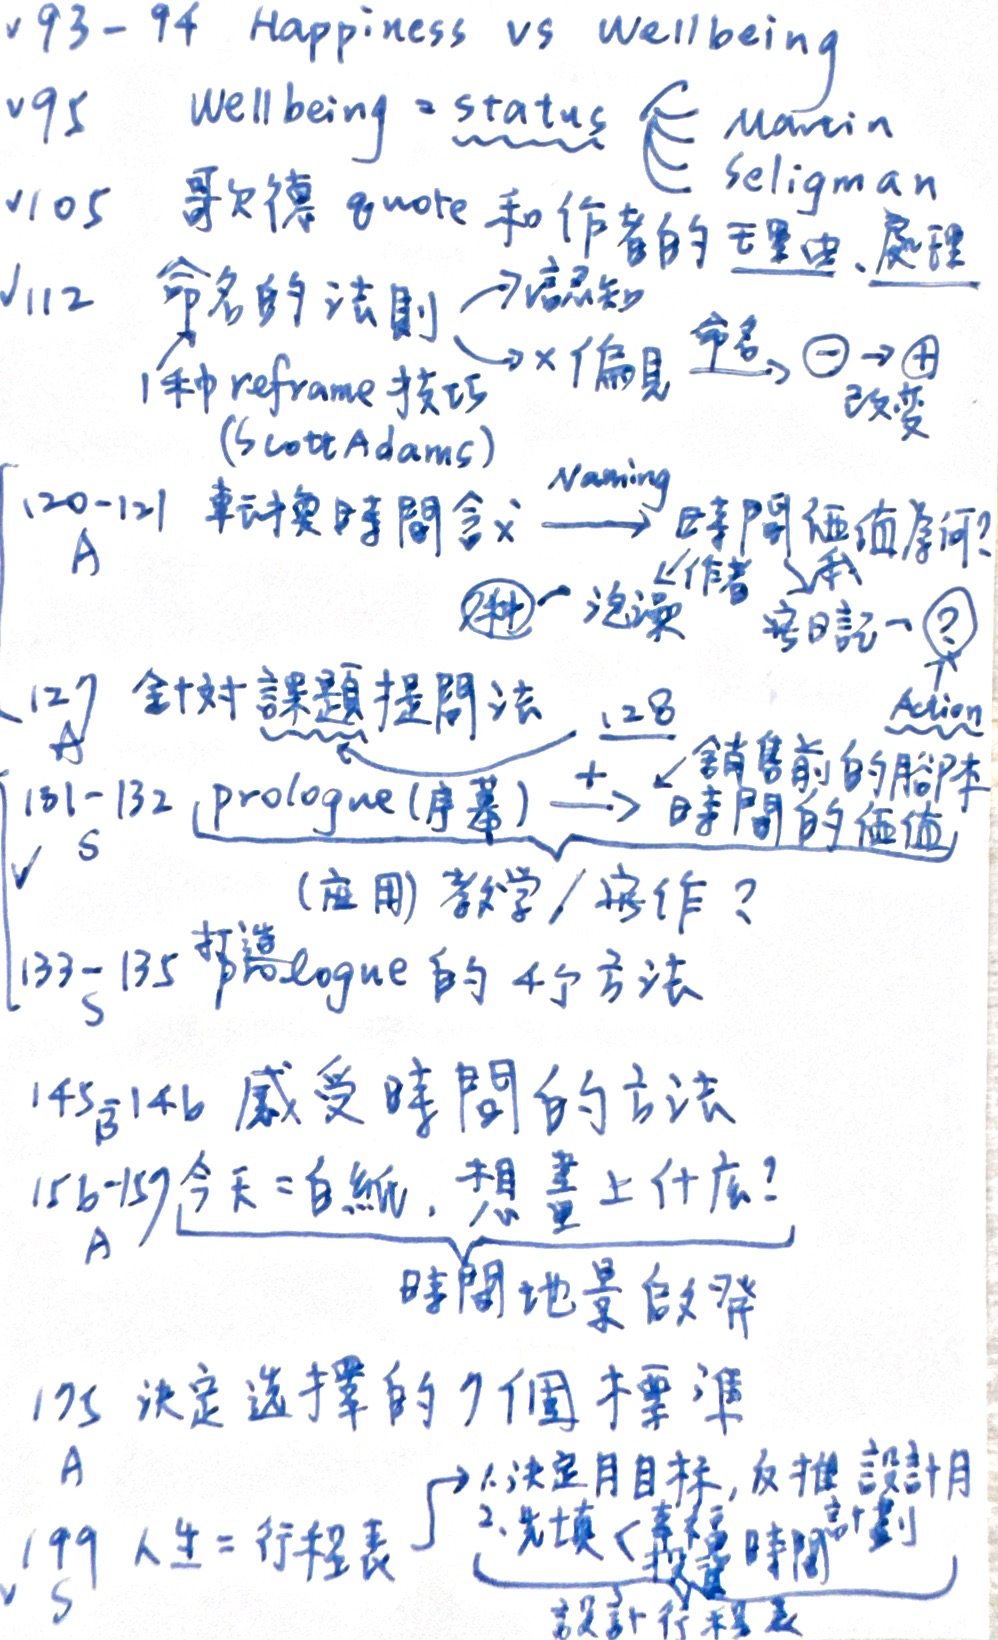 v 93-94 Happiness vs Wellbeing
v 95 Wellbeing = status Martin
Seligman
v 105 歌德 quote 和作者的理由、處理
v 112 命名的法則 → 認知
→ x 偏見 命名 → ⊖ → ⊕
改變
1種 reframe 技巧
(Scott Adams)
120-121 轉換時間含义 Naming → 時間価值為何?
A
↙作者 ↘我
泡澡 寫日記 - ?
127 針對課題提問法 128 Action
A
131-132 prologue (序幕) + → 銷售前的腳本
S 時間的価值
v
(应用) 教学 / 寫作?
133-135 打造logue 的 4个方法
S
145-146 感受時間的方法
B
156-157 今天 = 白紙, 想畫上什庅?
A
時間地景啟發
175 決定選擇的 7個標準
A
199 人生 = 行程表 → 1.決定月目标, 反推設計月計劃
v S
2.先填 < 幸福 時間
投資
設計行程表